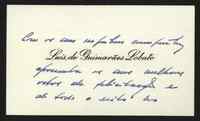 Com os seus respeitosos cumprimentos
Luís de Guimarães Lobato
apresenta os seus melhores
votos de felicitações e
de todo o